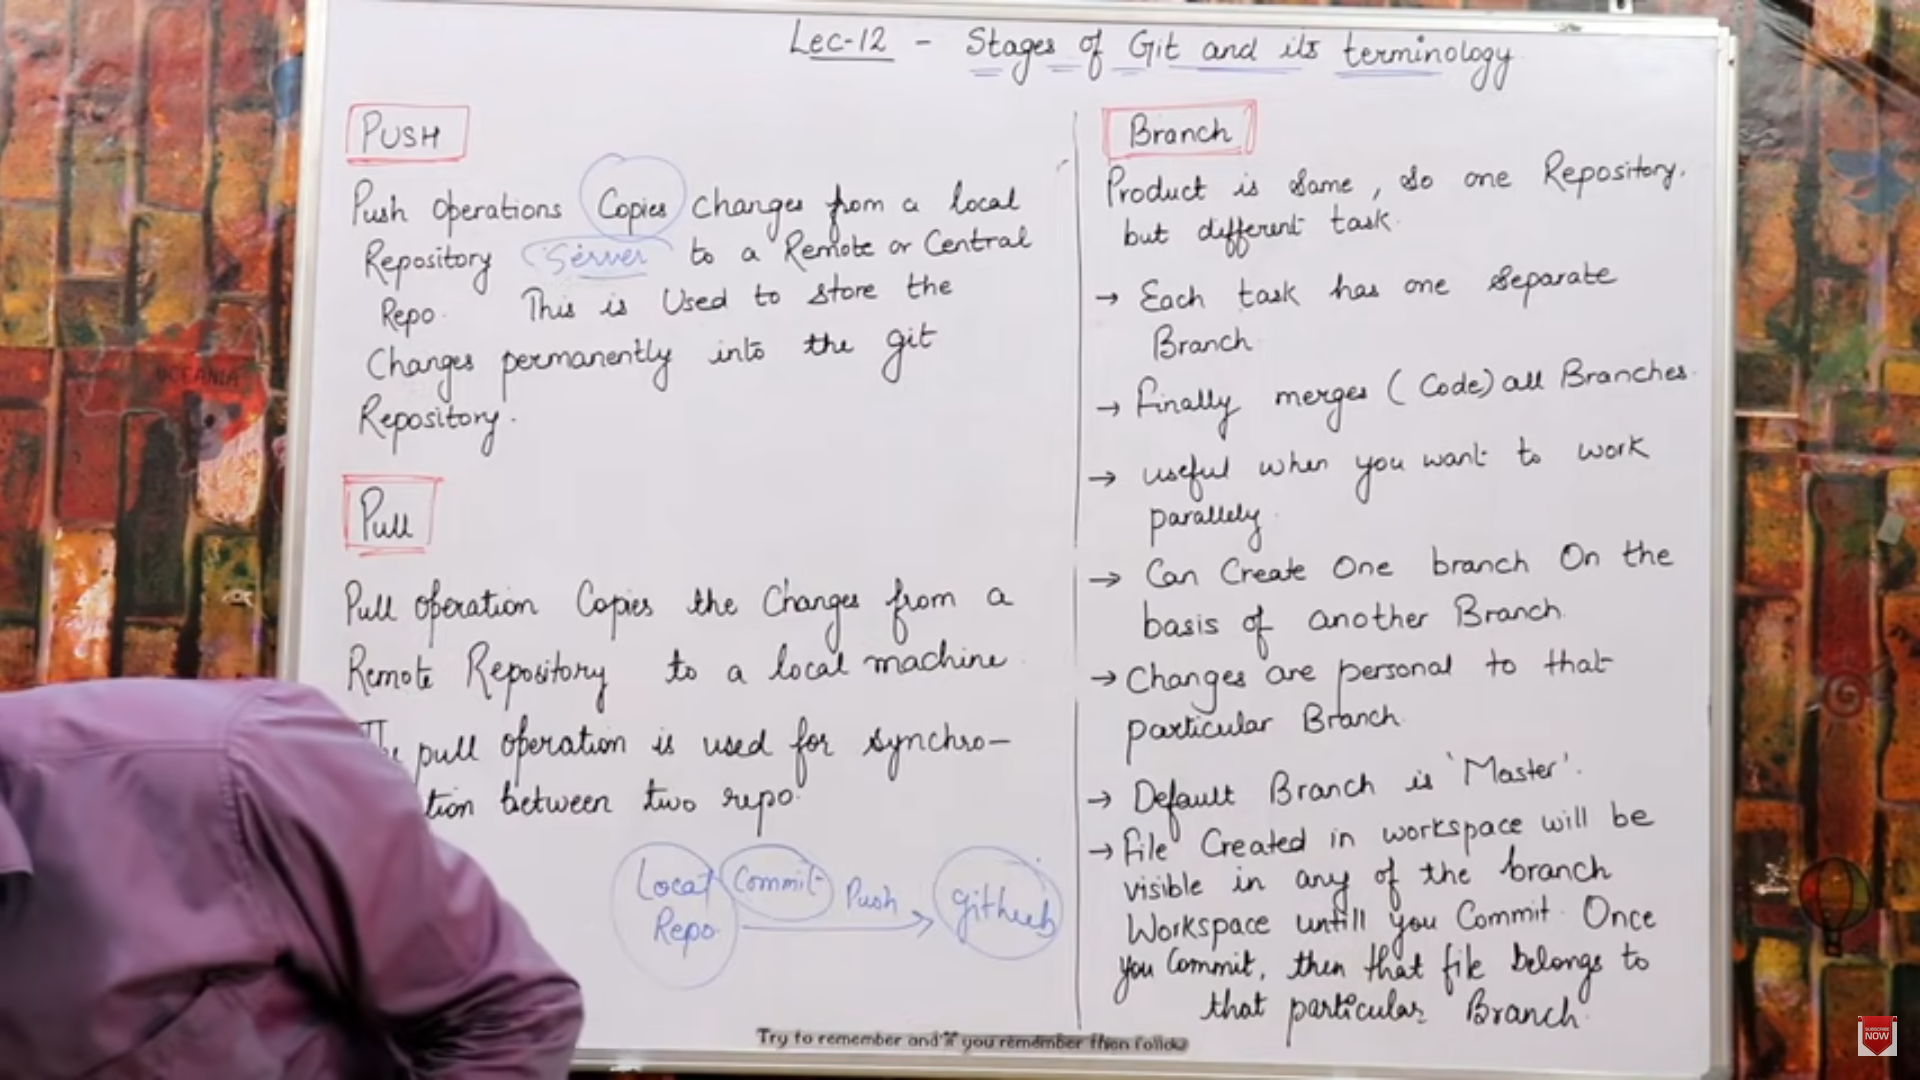 Lec-12 - Stages of Git and its terminology
PUSH
Push operations Copies changes from a local
Repository Server to a Remote or Central
Repo. This is Used to store the
Changes permanently into the git
Repository.
Pull
Pull operation Copies the Changes from a
Remote Repository to a local machine
The pull operation is used for synchro-
tion between two repo.
Local Commit Push github
Repo.
Branch
Product is same, so one Repository.
but different task.
→ Each task has one separate
Branch
→ finally merges (Code) all Branches.
→ useful when you want to work
parallely
→ Can Create One branch On the
basis of another Branch.
→ Changes are personal to that
particular Branch.
→ Default Branch is 'Master'.
→ file Created in workspace will be
visible in any of the branch
Workspace untill you Commit. Once
you Commit, then that file belongs to
that particular Branch.
Try to remember and if you remember then follow
SUBSCRIBE
NOW